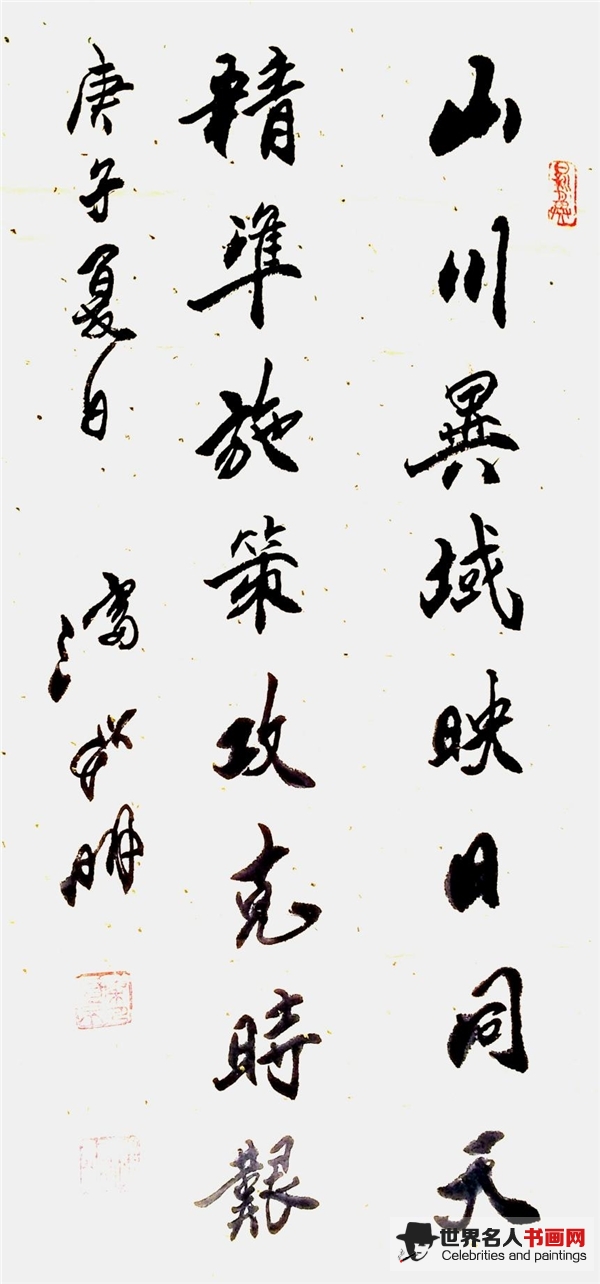 山川異域映日同天
精準施策攻克時艱
庚子夏日 潘
明
世界名人书画网
Celebrities and paintings